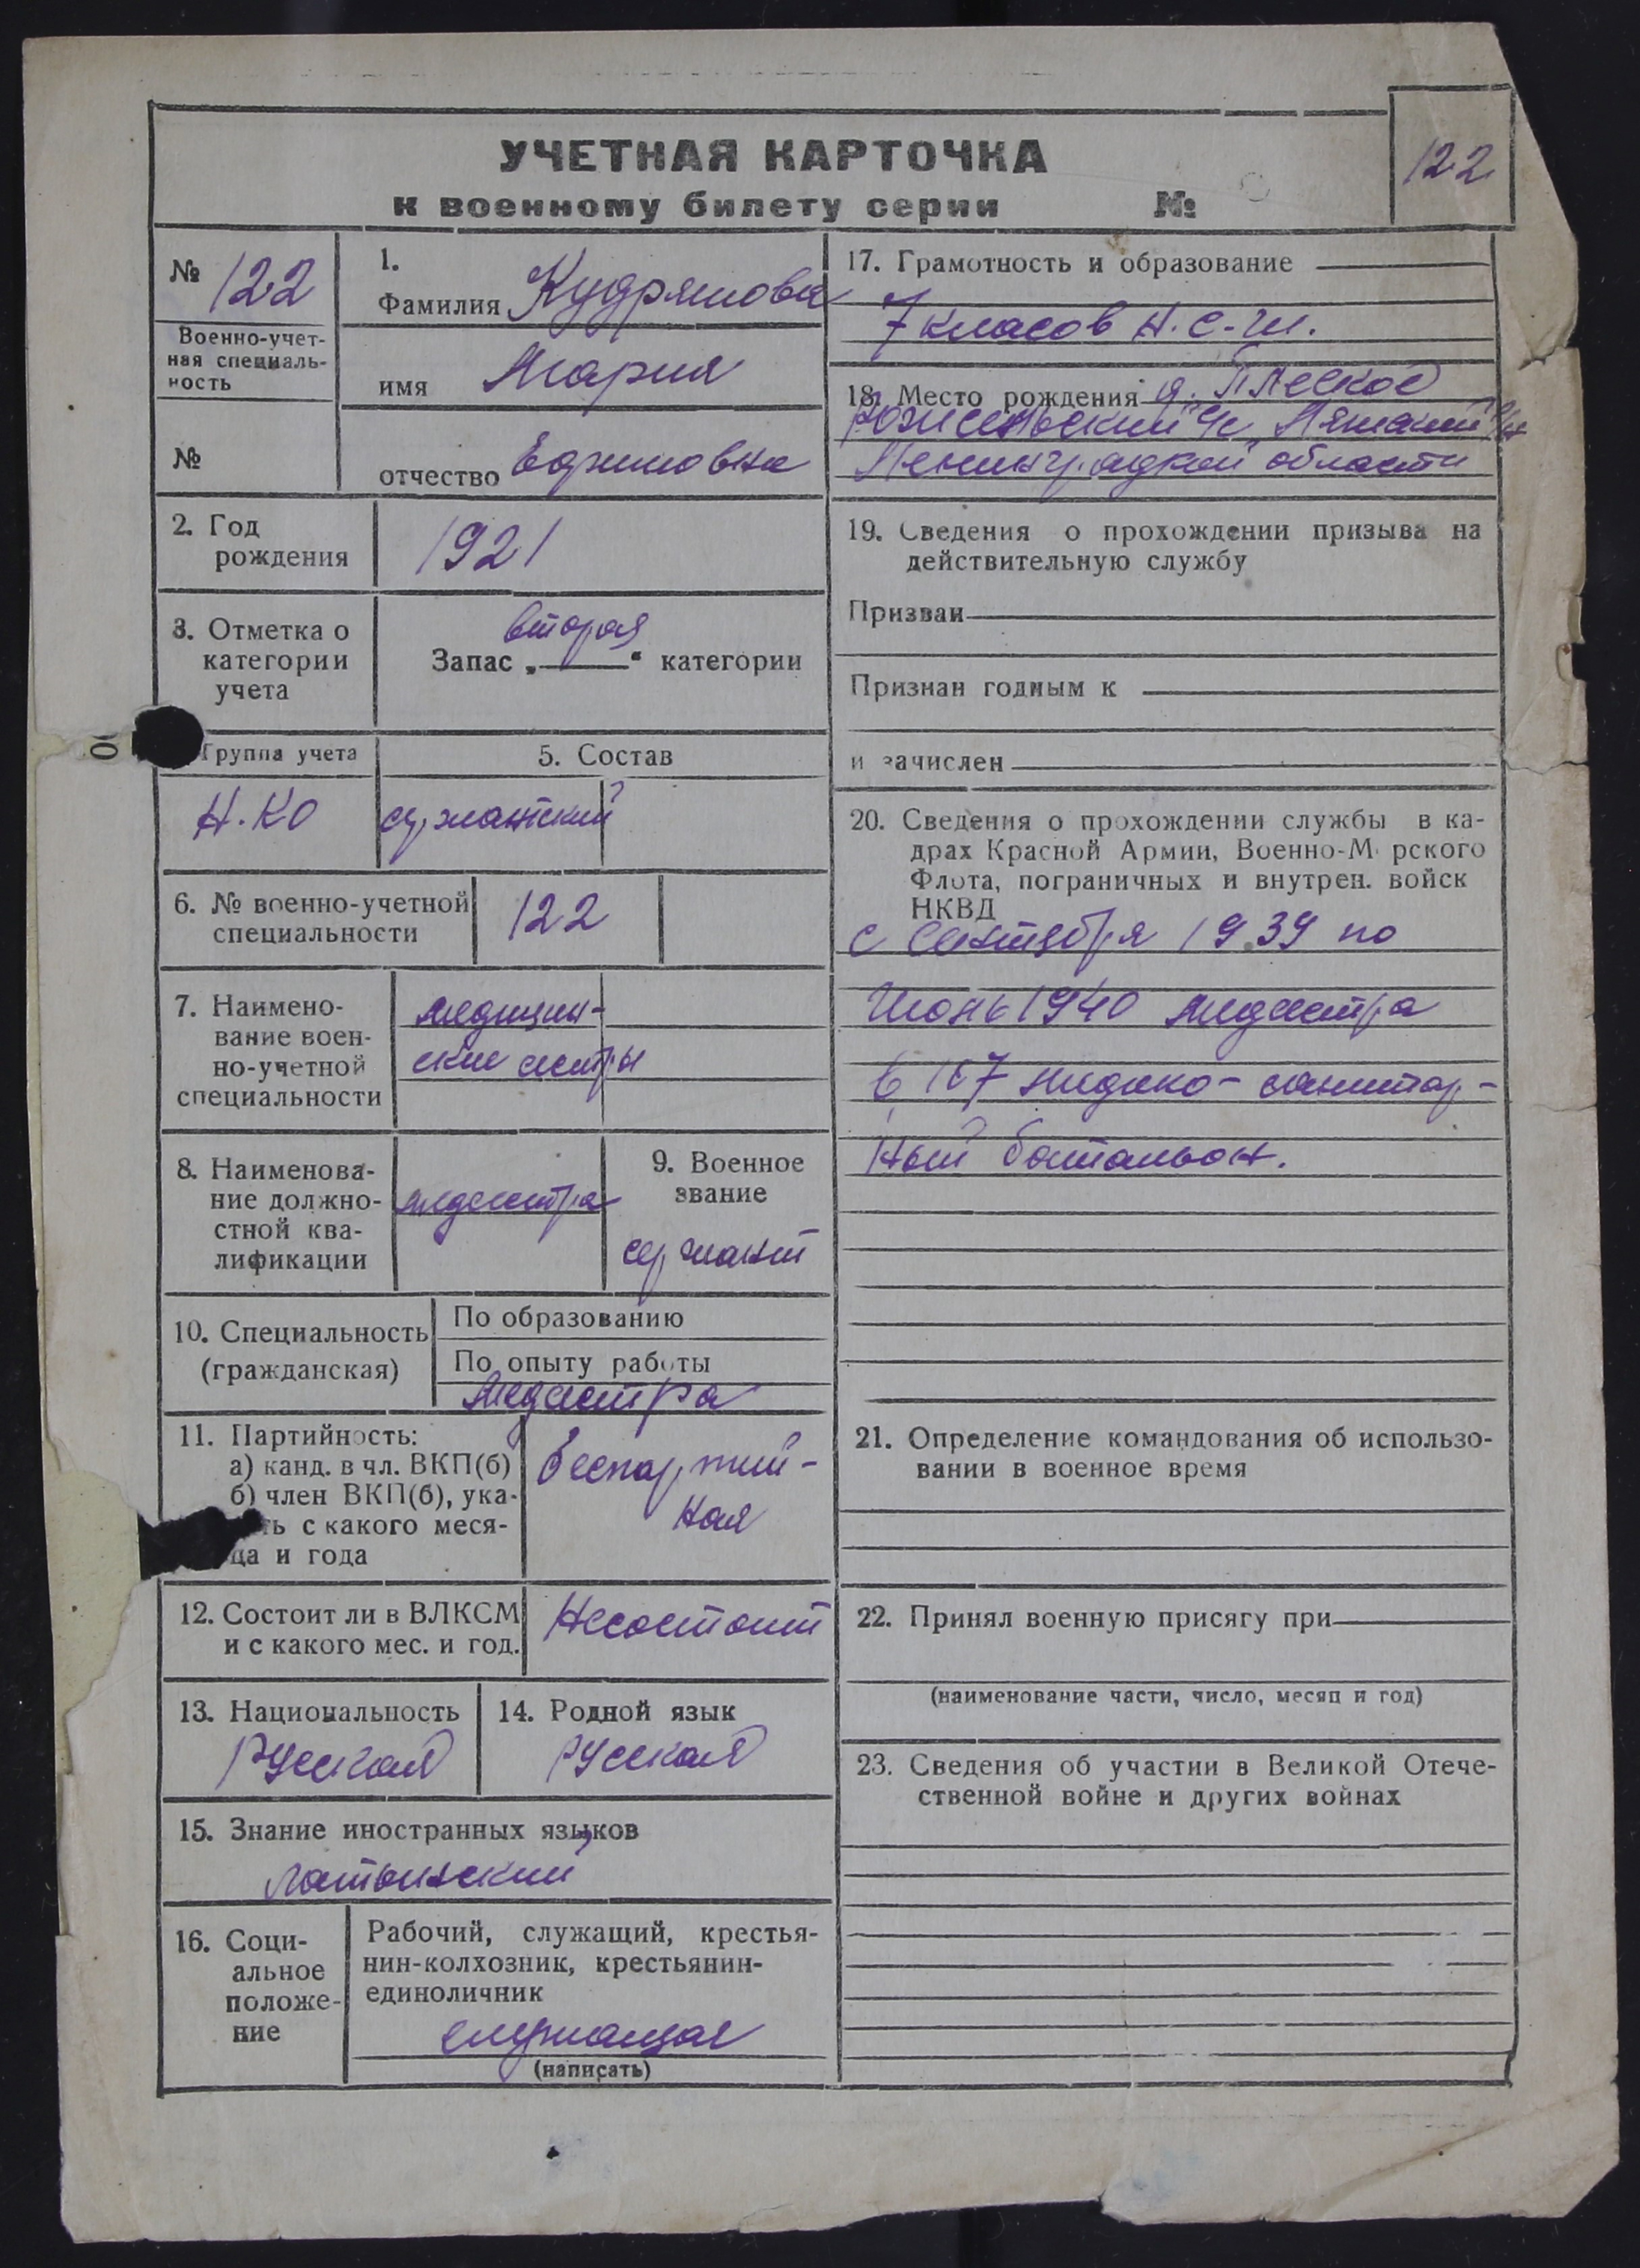 УЧЕТНАЯ КАРТОЧКА
к военному билету серии №
122
№ 122
Военно-учет-
ная специаль-
ность
№
1.
Фамилия Кудряшова
имя Мария
отчество
2. Год
рождения
1921
3. Отметка о
категории
учета
вторая
Запас „ “ категории
Группа учета
Н.КО
5. Состав
сержантский
6. № военно-учетной
специальности
122
7. Наимено-
вание воен-
но-учетной
специальности
медицин-
ские сестры
8. Наименова-
ние должно-
стной ква-
лификации
медсестра
9. Военное
звание
сержант
10. Специальность
(гражданская)
По образованию
По опыту работы
медсестра
11. Партийность:
а) канд. в чл. ВКП(б)
б) член ВКП(б), ука-
ть с какого меся-
ца и года
беспартий-
ная
12. Состоит ли в ВЛКСМ
и с какого мес. и год.
Несостоит
13. Национальность
Русская
14. Родной язык
Русская
15. Знание иностранных языков
латынский
16. Соци-
альное
положе-
ние
Рабочий, служащий, крестья-
нин-колхозник, крестьянин-
единоличник
служащая
(написать)
17. Грамотность и образование
7 класов Н.С.Ш.
18. Место рождения д.
Ленинградской области
19. Сведения о прохождении призыва на
действительную службу
Призван
Признан годным к
и зачислен
20. Сведения о прохождении службы в ка-
драх Красной Армии, Военно-М рского
Флота, пограничных и внутрен. войск
НКВД
с сентября 1939 по
Июнь 1940 медсестра
в медико-санитар-
ный батальон.
21. Определение командования об использо-
вании в военное время
22. Принял военную присягу при
(наименование части, число, месяц и год)
23. Сведения об участии в Великой Отече-
ственной войне и других войнах